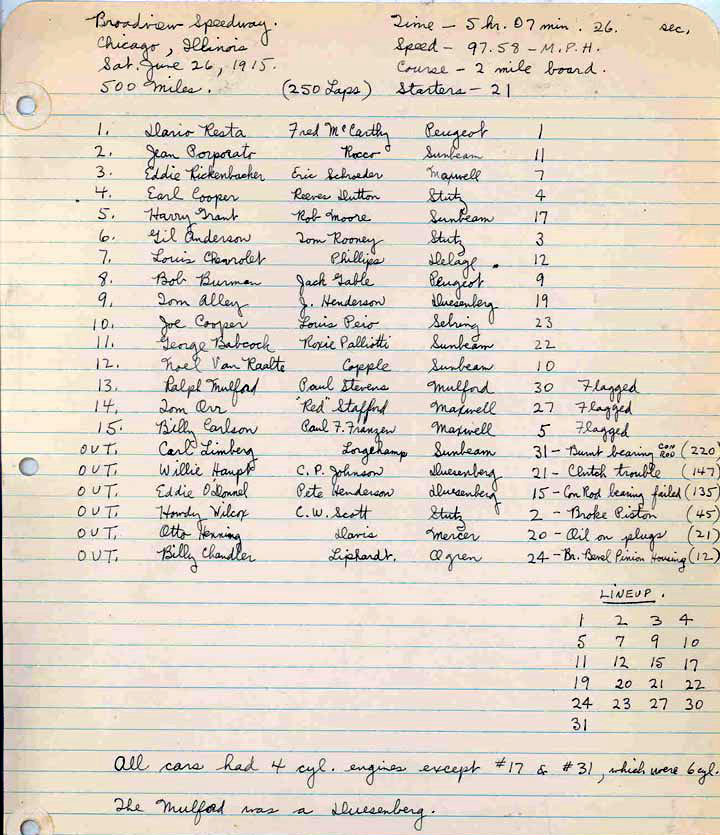 Broadview Speedway. Time - 5 hr. 07 min. 26. sec.
Chicago, Illinois Speed - 97.58 - M.P.H.
Sat. June 26, 1915. Course - 2 mile board.
500 Miles. (250 Laps) Starters - 21
1. Dario Resta Fred McCarthy Peugeot 1
2. Jean Porporato Rocco Sunbeam 11
3. Eddie Rickenbacker Eric Schroeder Maxwell 7
4. Earl Cooper Reeves Dutton Stutz 4
5. Harry Grant Rob Moore Sunbeam 17
6. Gil Anderson Tom Rooney Stutz 3
7. Louis Chevrolet Phillips Delage 12
8. Bob Burman Jack Gable Peugeot 9
9. Tom Alley J. Henderson Duesenberg 19
10. Joe Cooper Louis Peio Sebring 23
11. George Babcock Roxie Palliotti Sunbeam 22
12. Noel Van Raalte Copple Sunbeam 10
13. Ralph Mulford Paul Stevens Mulford 30 Flagged
14. Tom Orr "Red" Stafford Maxwell 27 Flagged
15. Billy Carlson Paul F. Franzen Maxwell 5 Flagged
OUT. Carl Limberg Longchamp Sunbeam 31 - Burnt bearing CON ROD (220)
OUT. Willie Haupt C. P. Johnson Duesenberg 21 - Clutch trouble (147)
OUT. Eddie O'Donnel Pete Henderson Duesenberg 15 - Con Rod bearing failed (135)
OUT. Howdy Wilcox C. W. Scott Stutz 2 - Broke Piston (45)
OUT. Otto Henning Davis Mercer 20 - Oil on plugs (21)
OUT. Billy Chandler Liphardt. Ogren 24 - Br. Bevel Pinion Housing (12)
LINEUP.
1 2 3 4
5 7 9 10
11 12 15 17
19 20 21 22
24 23 27 30
31
All cars had 4 cyl. engines except #17 & #31, which were 6 cyl.
The Mulford was a Duesenberg.